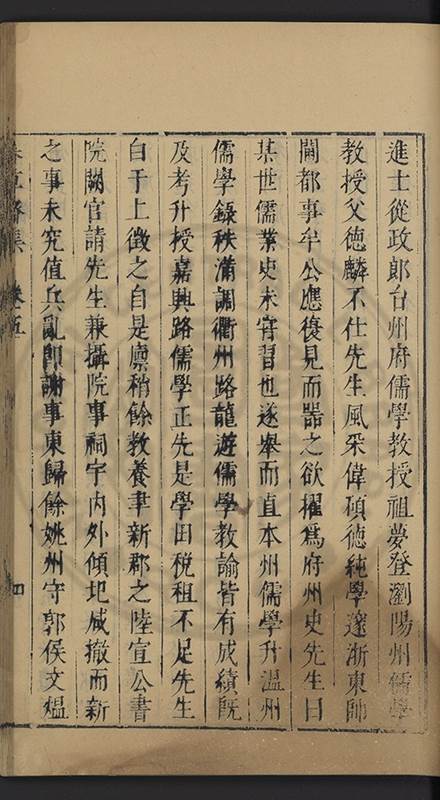 進士從政郎台州府儒學教授祖夢登瀏陽州儒學
教授父德麟不仕先生風采偉碩德純學邃浙東帥
閫都事牟公應復見而器之欲擢爲府州史先生曰
某世儒業史未甞習也遂舉而直本州儒學升溫州
儒學錄秩滿調衢州路龍遊儒學教諭皆有成績旣
及考升授嘉興路儒學正先是學田稅租不足先生
白于上徵之自是廪稍餘教養聿新郡之陸宣公書
院闕官請先生兼攝院事祠宇内外傾圮咸撤而新
之事未究值兵亂卽謝事東歸餘姚州守郭侯文煴
集 卷五 四